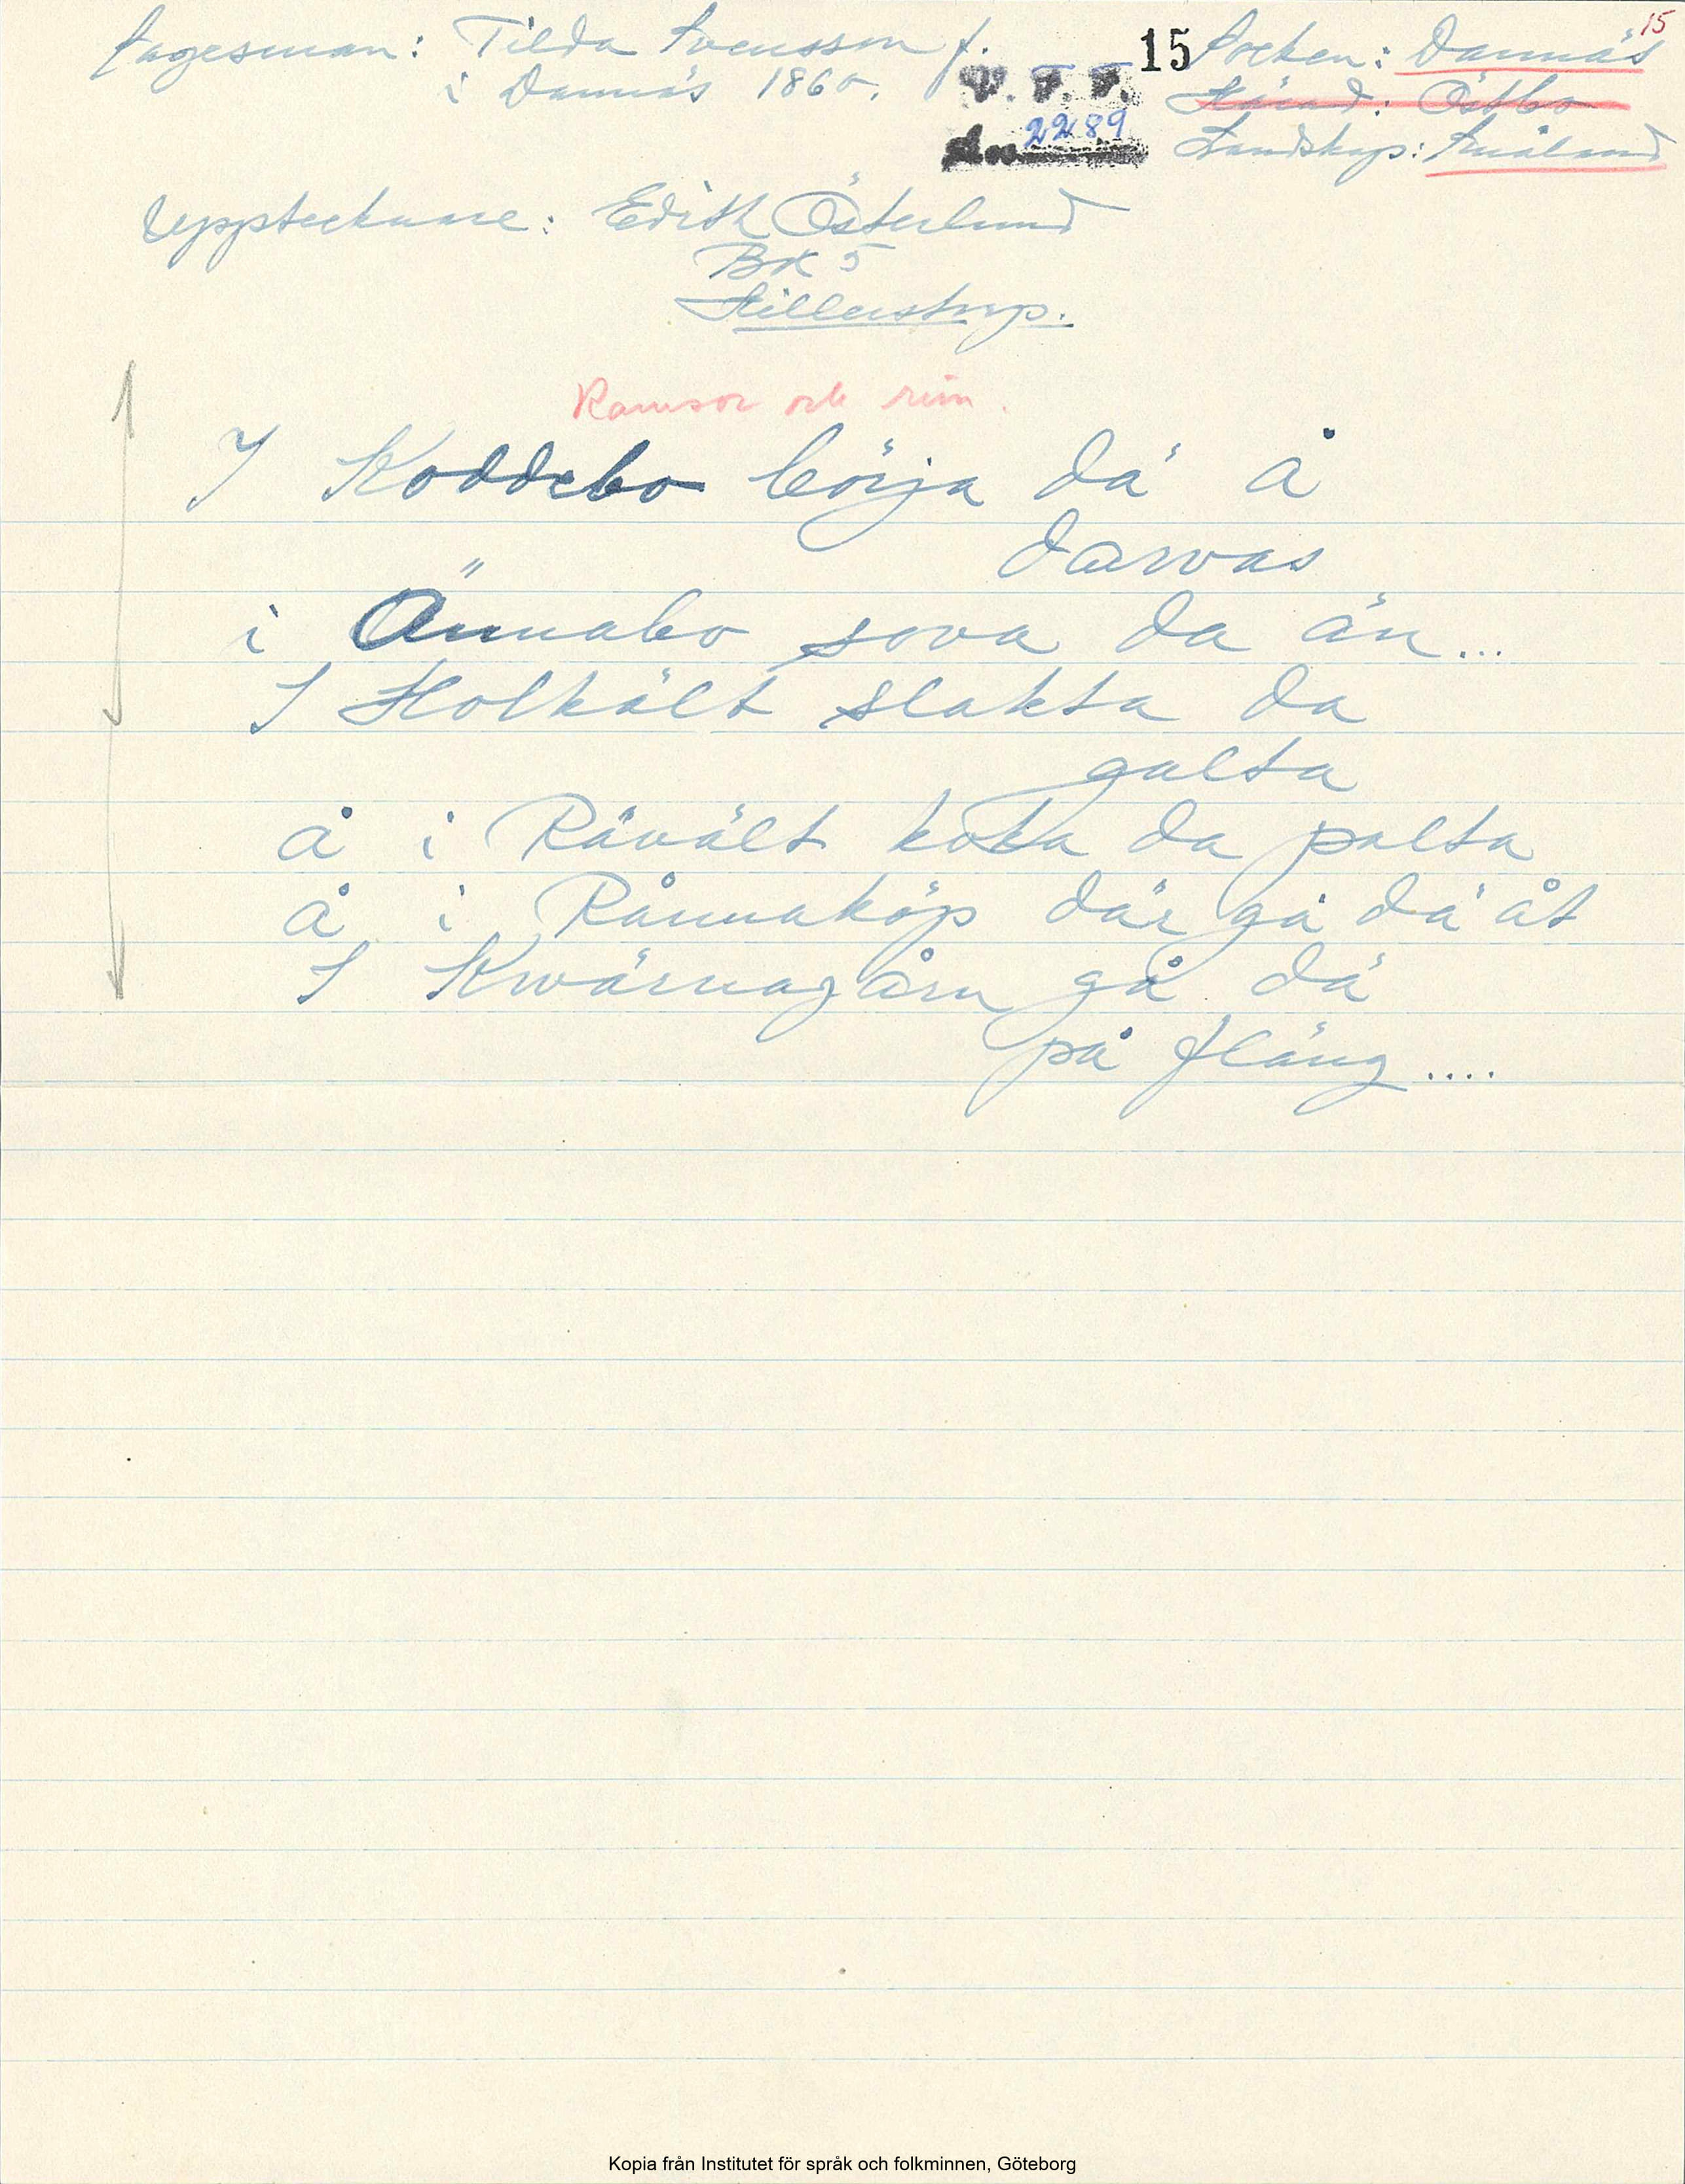 Sagesman: Tilda Svensson f.
i Dannäs 1860.
V. F. F.
2289
15
15
Socken: Dannäs
Härad: Östbo
Landskap: Småland
Upptecknare: Edith Österlund
Bx 5
Hillerstorp.
Ramsor och rim.
I Koddebo börja dä å
darvas
i Ännabo sova da än...
I Holkält slakta da
galta
å i Rävält koka da palta
å i Rånnaköp där gå dä åt
I Kwärnagårn gå dä
på fläng....
Kopia från Institutet för språk och folkminnen, Göteborg